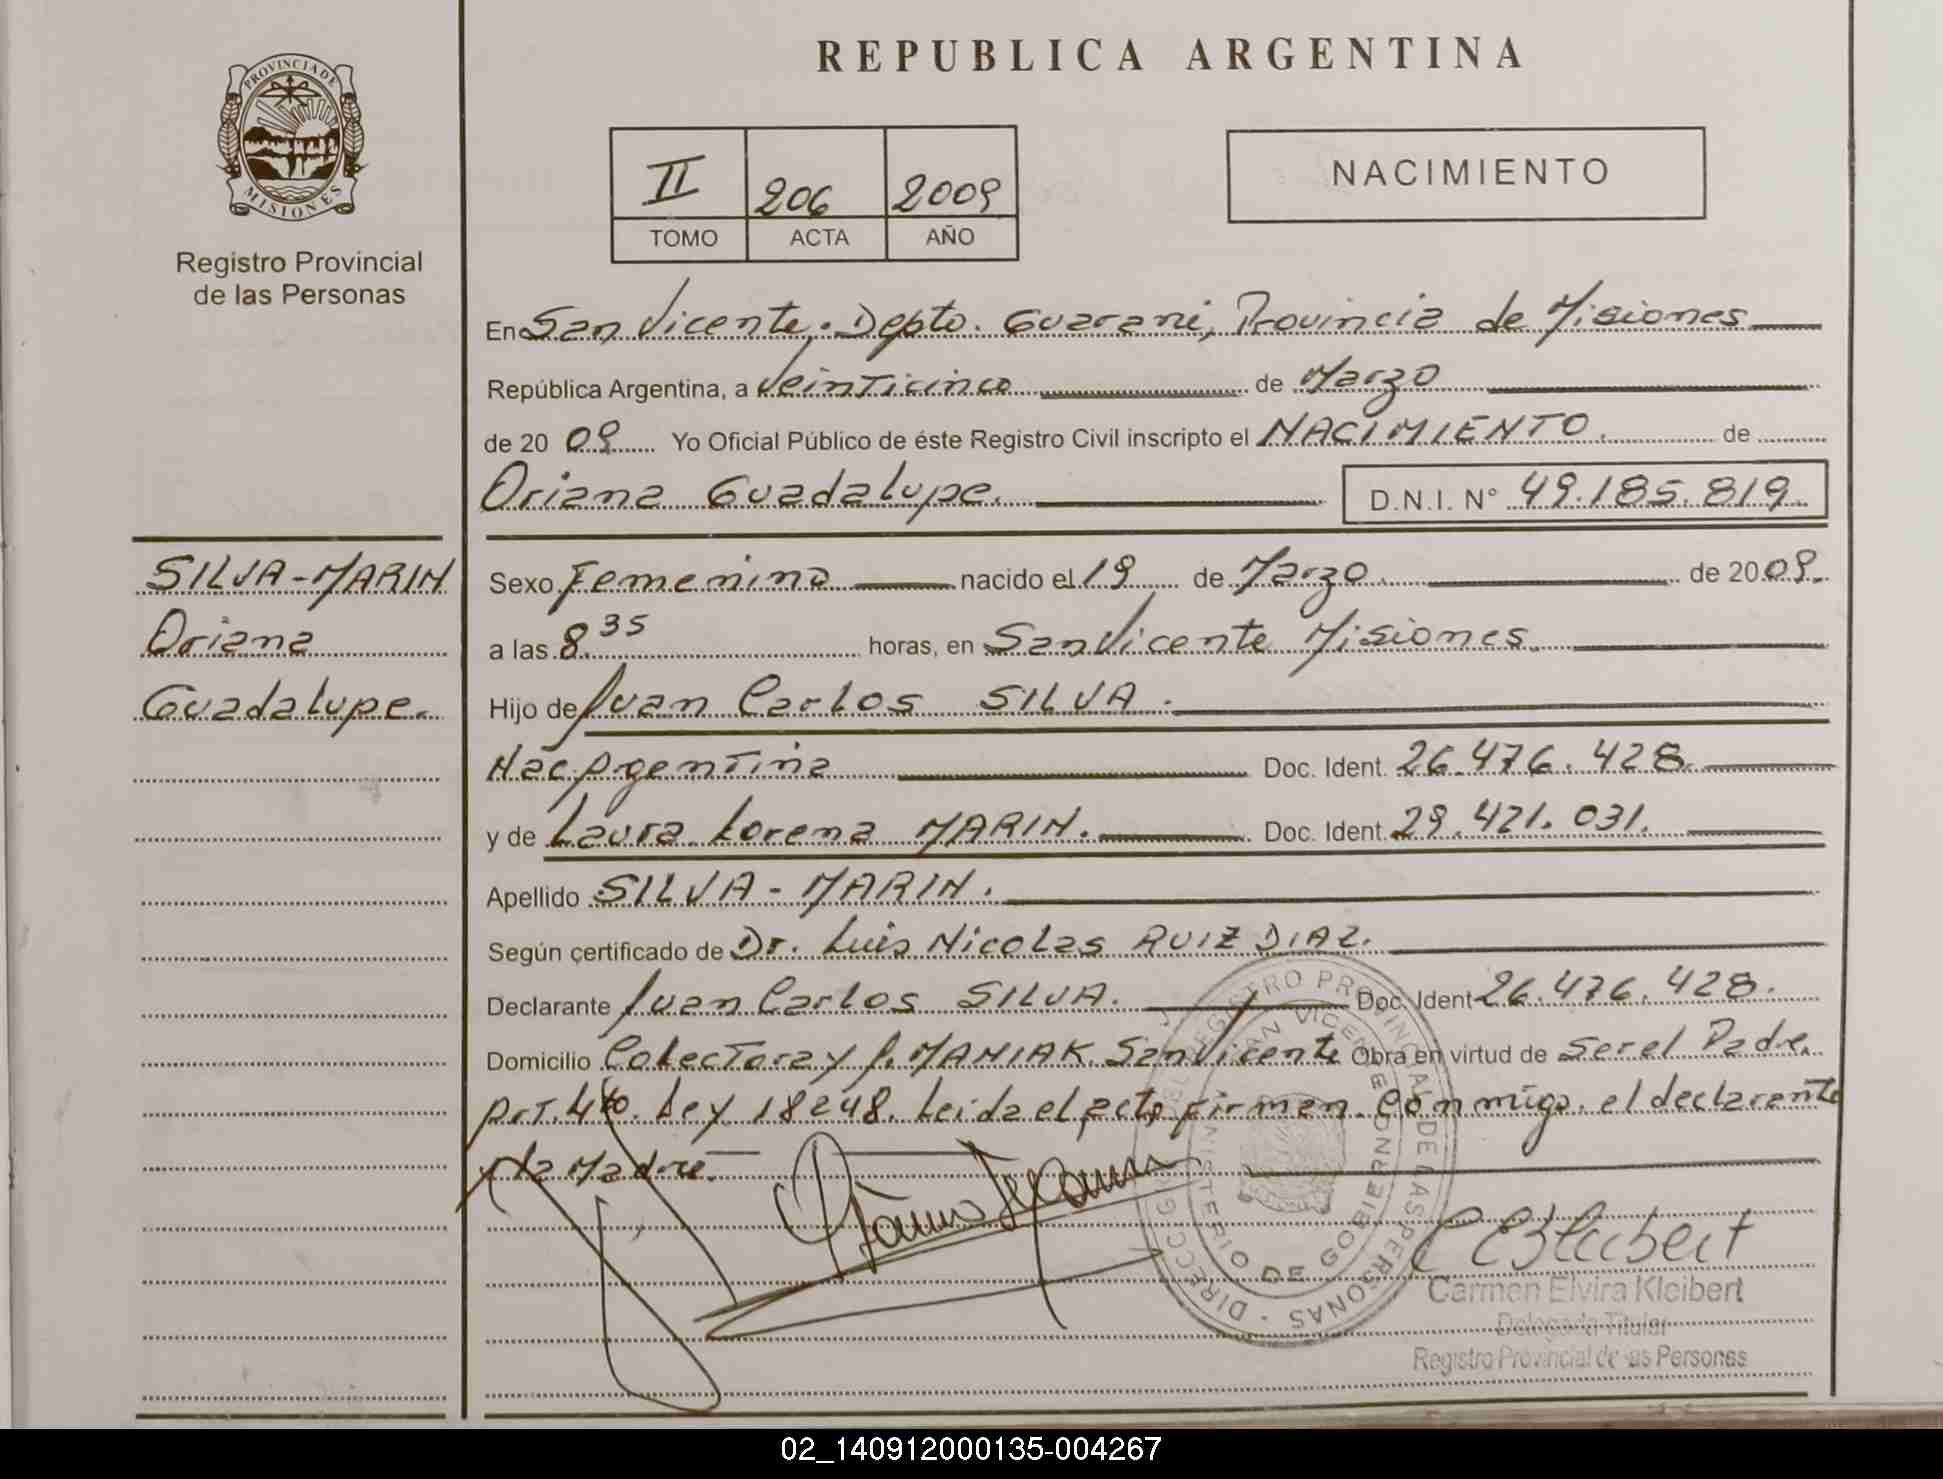 REPUBLICA ARGENTINA
PROVINCIA DE
MISIONES
Registro Provincial
de las Personas
II 206 2009
TOMO ACTA AÑO
NACIMIENTO
En San Vicente. Depto. Guarani, Provincia de Misiones
República Argentina, a Veinticinco de Marzo
de 20 09 Yo Oficial Público de éste Registro Civil inscripto el NACIMIENTO. de
Oriana Guadalupe. D.N.I. N° 49.185.819.
SILVA-MARIN
Oriana
Guadalupe.
Sexo Femenino nacido el 19 de Marzo de 2009.
a las 8.35 horas, en San Vicente Misiones.
Hijo de Juan Carlos SILVA.
Nac. Argentina Doc. Ident. 26.476.428.
y de Laura Lorena MARIN. Doc. Ident. 29.421.031.
Apellido SILVA - MARIN.
Según certificado de Dr. Luis Nicolas RUIZ DIAZ.
Declarante Juan Carlos SILVA. Doc. Ident 26.476.428.
Domicilio Colectora y J. MANIAK. San Vicente Obra en virtud de ser el Padre.
Art. 4to. Ley 18248. Leida el acta firman. Conmigo. el declarante
y la Madre.
DIRECCION REGISTRO PROVINCIAL DE LAS PERSONAS
SAN VICENTE
MINISTERIO DE GOBIERNO
Carmen Elvira Kleibert
Delegada Titular
Registro Provincial de las Personas
02_140912000135-004267